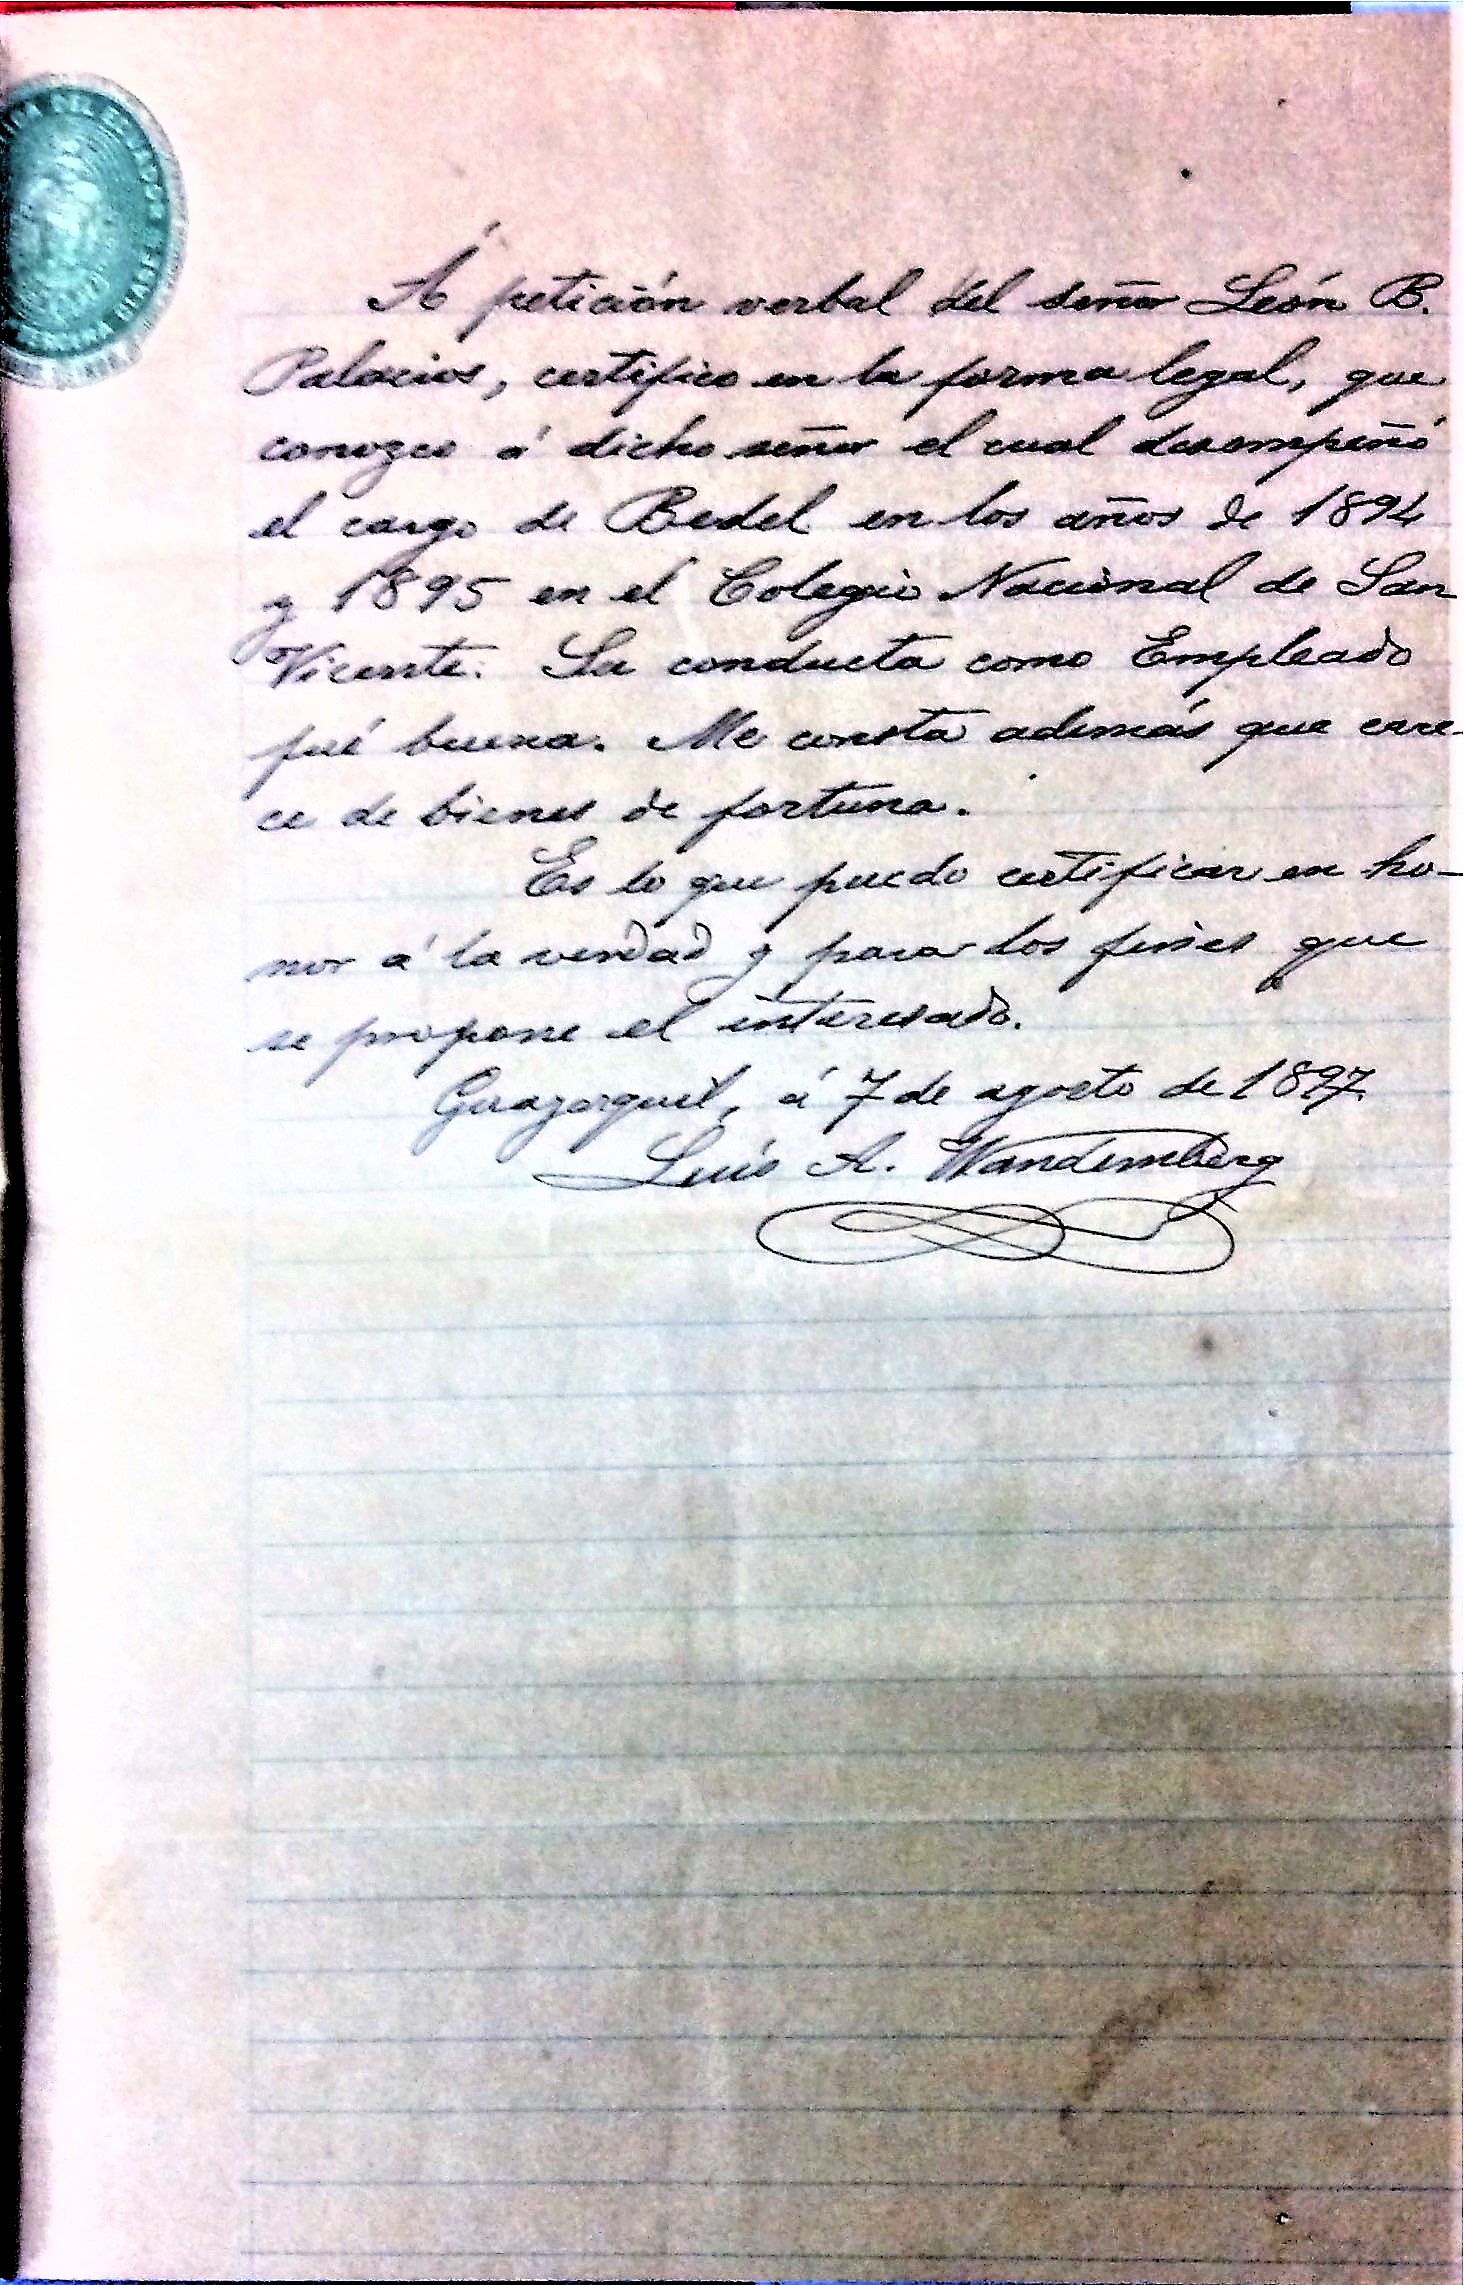 DEL ECUADOR
Á petición verbal del señor León B.
Palacios, certifico en la forma legal, que
conozco á dicho señor el cual desempeñó
el cargo de Bedel en los años de 1894
y 1895 en el Colegio Nacional de San
Vicente. Su conducta como Empleado
fué buena. Me consta además que care-
ce de bienes de fortuna.
Es lo que puedo certificar en ho-
nor á la verdad y para los fines que
se propone el interesado.
Guayaquil, á 7 de agosto de 1897.
Luis A. Wandemberg